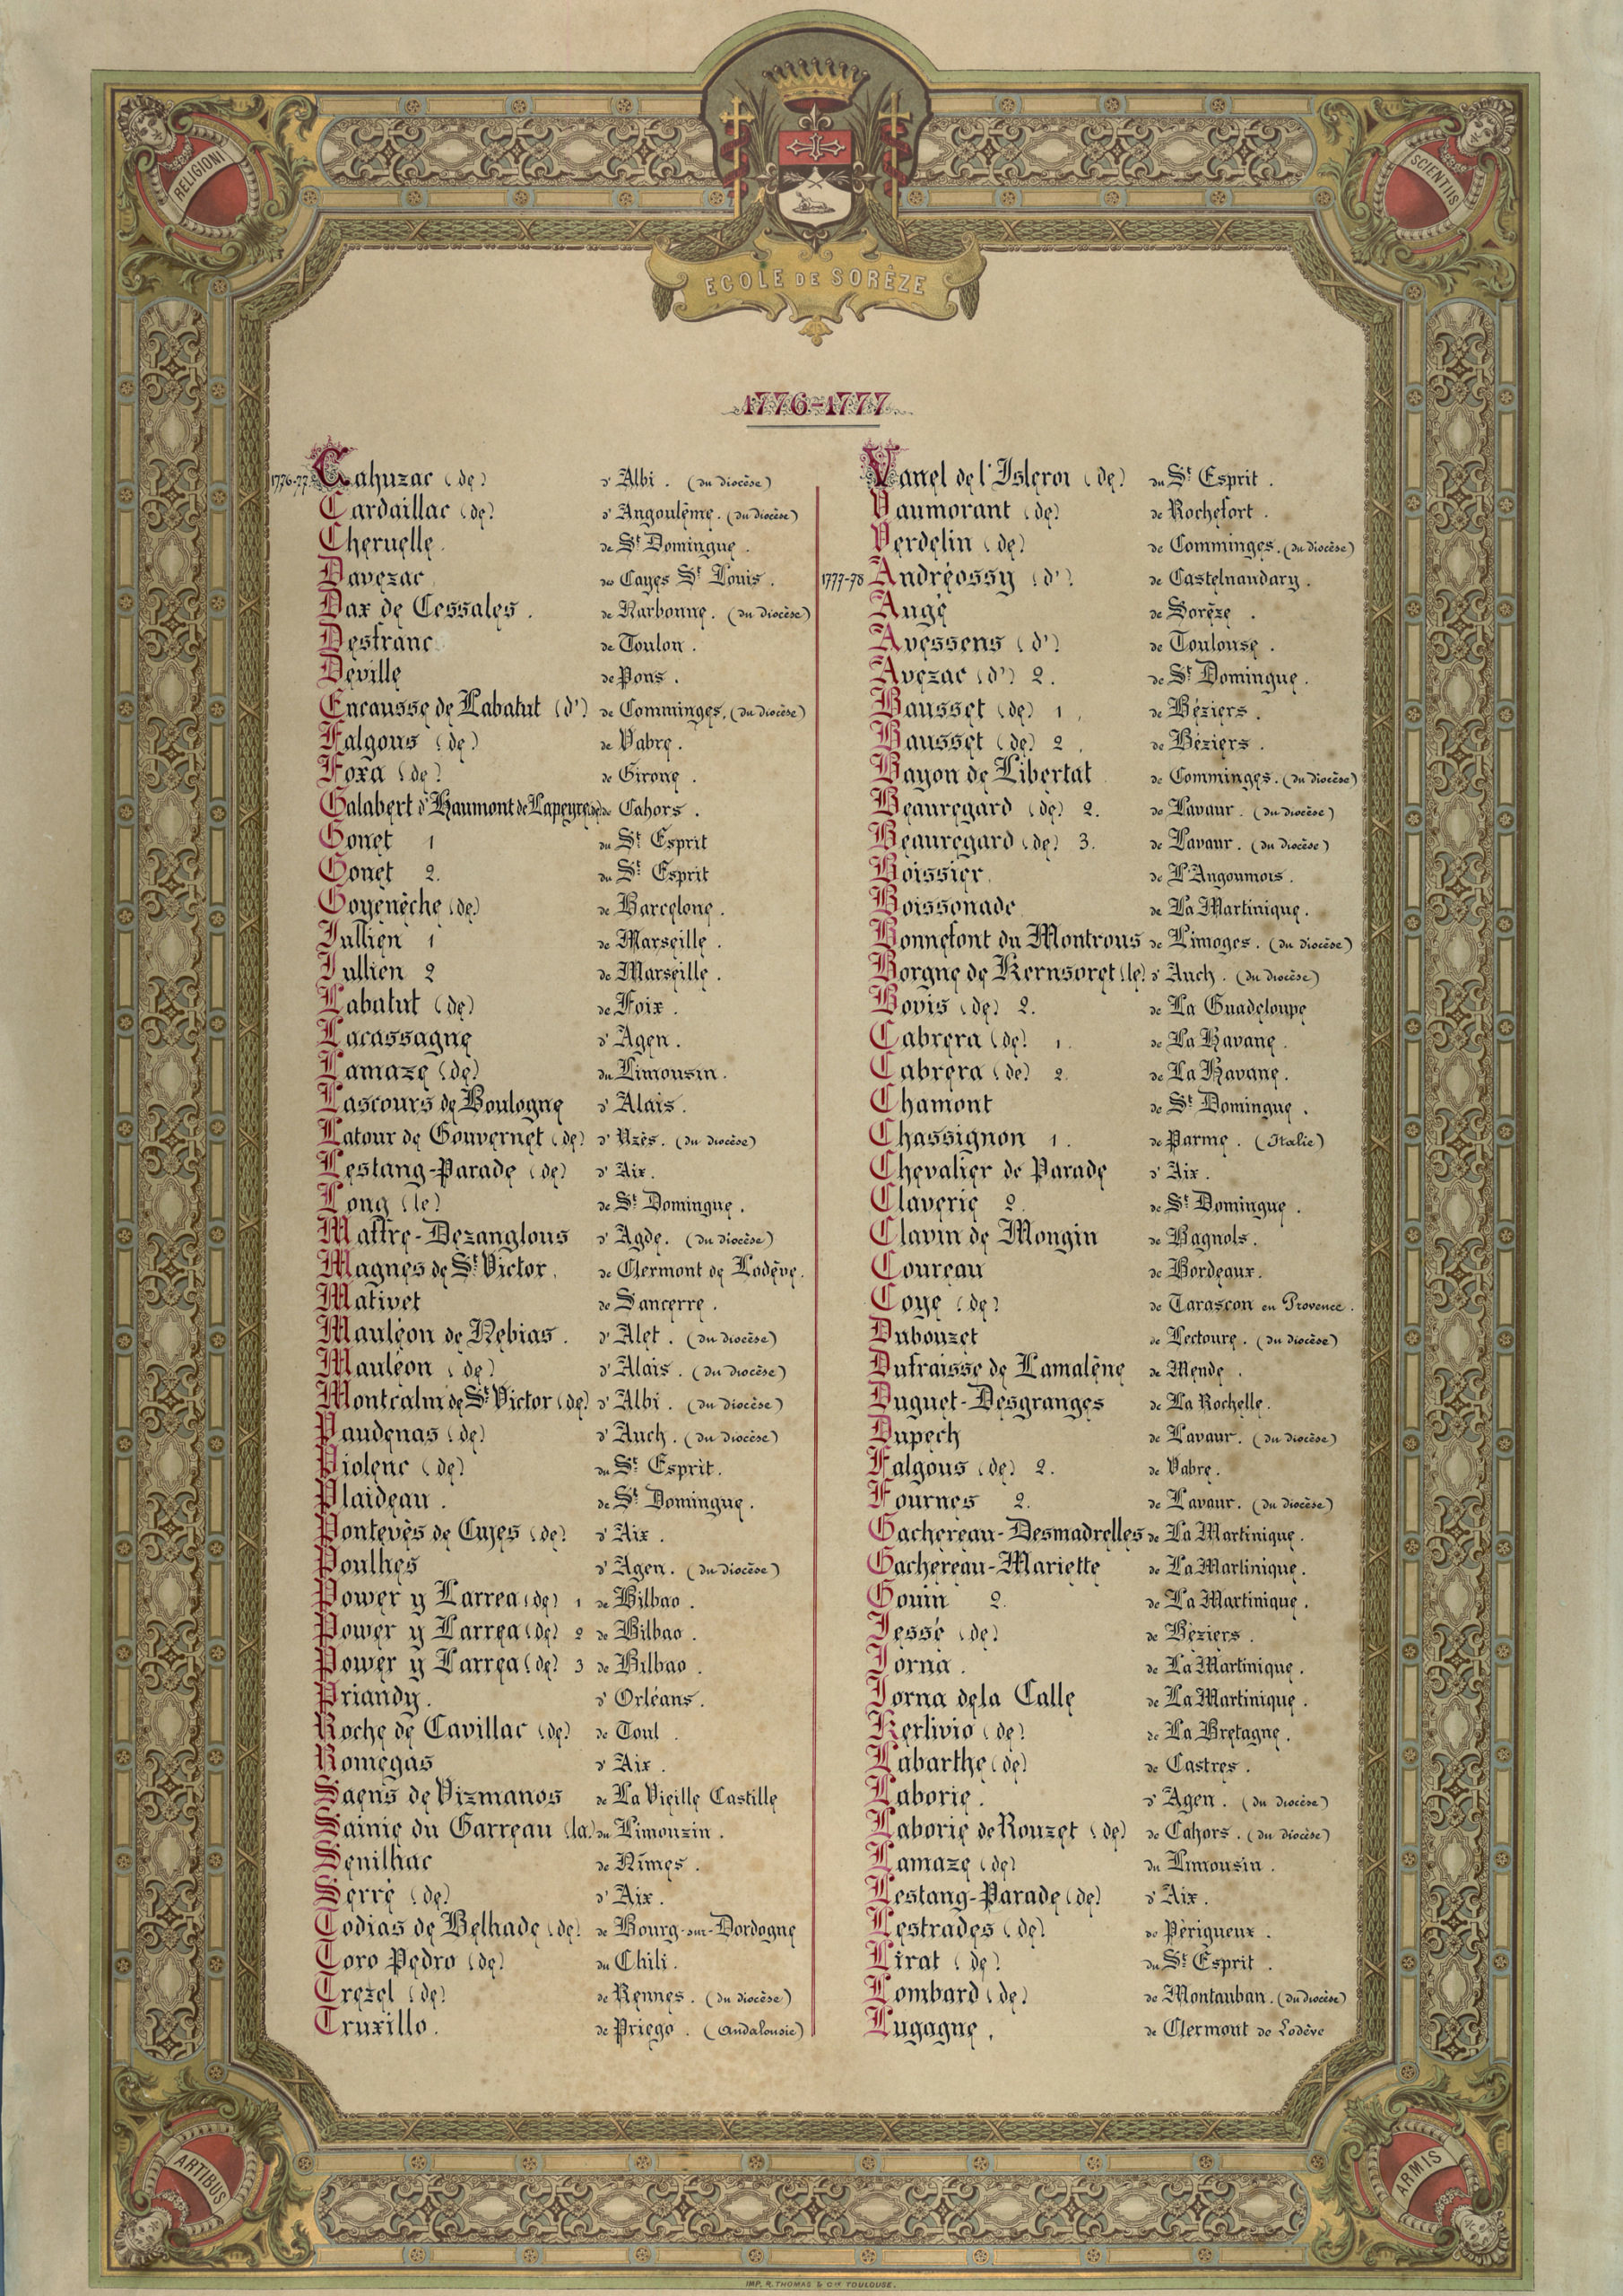 RELIGIONI
SCIENTIIS
ECOLE DE SORÈZE
1776-1777
1776-77 Cahuzac (de) d'Albi. (du diocèse)
Cardaillac (de) d'Angoulême. (du diocèse)
Cheruelle. de St Domingue.
Davezac des Cayes St Louis.
Dax de Cessales. de Narbonne. (du diocèse)
Desfranc de Toulon.
Deville de Pons.
Encausse de Labatut (d') de Comminges. (du diocèse)
Falgous (de) de Vabre.
Foxa (de) de Girone.
Galabert d'Haumont de Lapeyre (de) de Cahors.
Gonet 1 du St Esprit
Gonet 2. du St Esprit
Goyenèche (de) de Barcelone.
Jullien 1 de Marseille.
Jullien 2 de Marseille.
Labatut (de) de Foix.
Lacassagne d'Agen.
Lamaze (de) du Limousin.
Lascours de Boulogne d'Alais.
Latour de Gouvernet (de) d'Uzès. (du diocèse)
Lestang-Parade (de) d'Aix.
Long (le) de St Domingue.
Maffre-Dezanglous d'Agde. (du diocèse)
Magnes de St Victor. de Clermont de Lodève.
Mativet de Sancerre.
Mauléon de Nebias. d'Alet. (du diocèse)
Mauléon (de) d'Alais. (du diocèse)
Montcalm de St Victor (de) d'Albi. (du diocèse)
Paudenas (de) d'Auch. (du diocèse)
Piolenc (de) du St Esprit.
Plaideau. de St Domingue.
Pontevès de Cujes (de) d'Aix.
Poulhes d'Agen. (du diocèse)
Power y Larrea (de) 1 de Bilbao.
Power y Larrea (de) 2 de Bilbao.
Power y Larrea (de) 3 de Bilbao.
Priandy. d'Orléans.
Roche de Cavillac (de) de Toul.
Romegas d'Aix.
Saens de Vizmanos de La Vieille Castille
Sainie du Garreau (la) du Limouzin.
Senilhac de Nîmes.
Serre (de) d'Aix.
Todias de Belhade (de) de Bourg-sur-Dordogne
Toro Pedro (de) du Chili.
Trezel (de) de Rennes. (du diocèse)
Truxillo. de Priego. (Andalousie)
Vanel de l'Isleroi (de) du St Esprit.
Vaumorant (de) de Rochefort.
Verdelin (de) de Comminges. (du diocèse)
1777-78 Andréossy (d') de Castelnaudary.
Augé de Sorèze.
Avessens (d') de Toulouse.
Avezac (d') 2. de St Domingue.
Bausset (de) 1. de Béziers.
Bausset (de) 2. de Béziers.
Bayon de Libertat de Comminges. (du diocèse)
Beauregard (de) 2. de Lavaur. (du diocèse)
Beauregard (de) 3. de Lavaur. (du diocèse)
Boissier. de L'Angoumois.
Boissonade de La Martinique.
Bonnefont du Montrous de Limoges. (du diocèse)
Borgne de Kernsoret (le) d'Auch. (du diocèse)
Bovis (de) 2. de La Guadeloupe
Cabrera (de) 1. de La Havane.
Cabrera (de) 2. de La Havane.
Chamont de St Domingue.
Chassignon 1. de Parme. (Italie)
Chevalier de Parade d'Aix.
Claverie 2. de St Domingue.
Clavin de Mongin de Bagnols.
Coureau de Bordeaux.
Coye (de) de Tarascon en Provence.
Dubouzet de Lectoure. (du diocèse)
Dufraisse de Lamalène de Mende.
Duguet-Desgranges de La Rochelle.
Dupech de Lavaur. (du diocèse)
Falgous (de) 2. de Vabre.
Fournes 2. de Lavaur. (du diocèse)
Gachereau-Desmadrelles de La Martinique.
Gachereau-Mariette de La Martinique.
Gouin 2. de La Martinique.
Jessé (de) de Béziers.
Jorna. de La Martinique.
Jorna dela Calle de La Martinique.
Kerlivio (de) de La Bretagne.
Labarthe (de) de Castres.
Laborie. d'Agen. (du diocèse)
Laborie de Rouzet (de) de Cahors. (du diocèse)
Lamaze (de) du Limousin.
Lestang-Parade (de) d'Aix.
Lestrades (de) de Périgueux.
Lirat (de) du St Esprit.
Lombard (de) de Montauban. (du diocèse)
Lugagne. de Clermont de Lodève
ARTIBUS
ARMIS
IMP. R. THOMAS & Cie TOULOUSE.